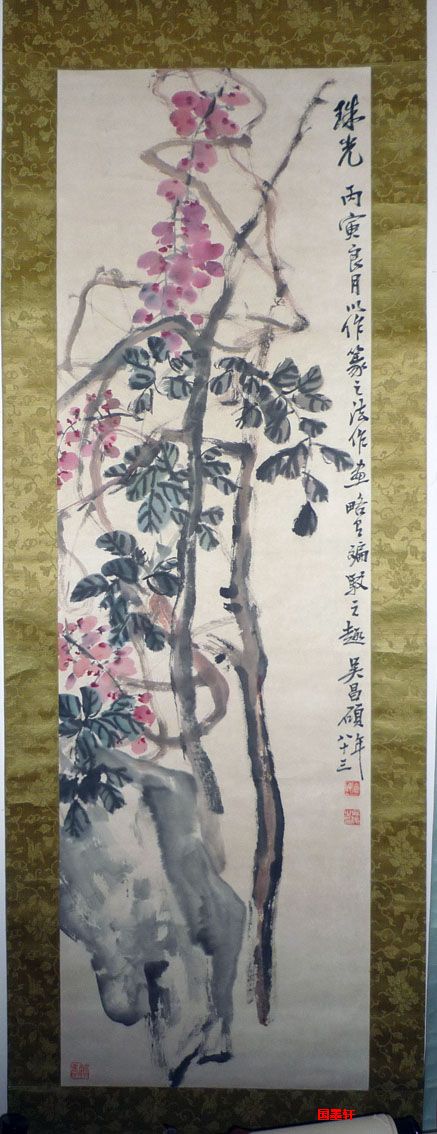 珠光 丙寅良月以作篆之法作画略呈斒駁之趣 吴昌硕年八十三
国墨轩